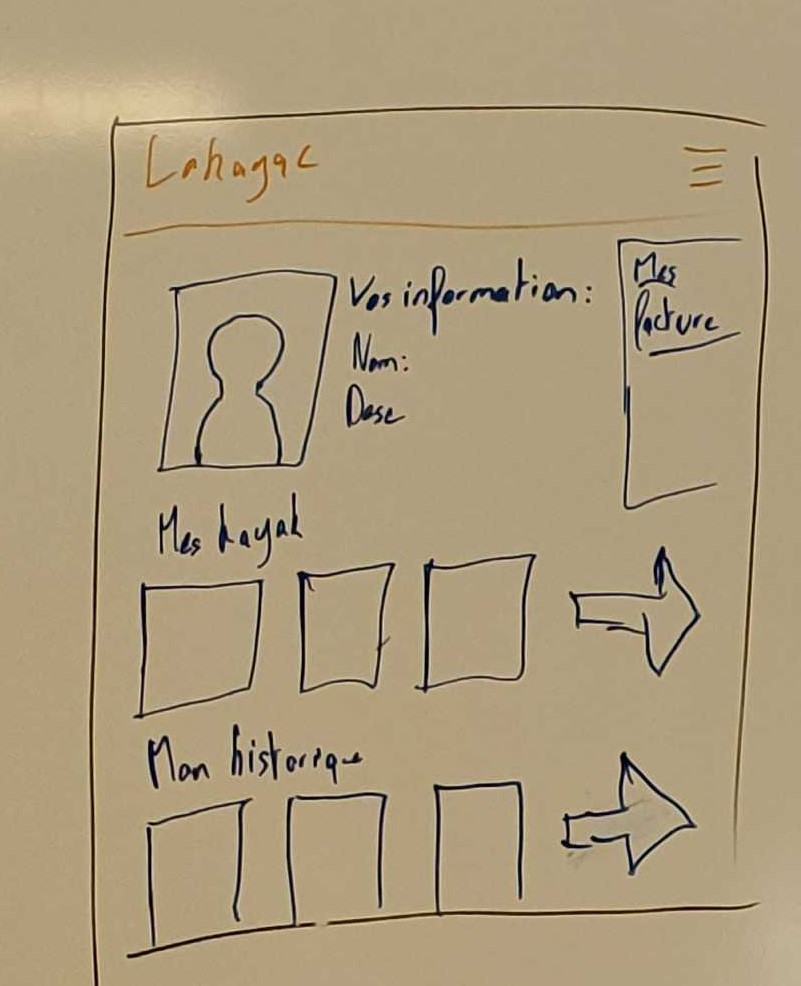 Vos information :
Nom :
Mes
facture
Mes kayak
Mon historique